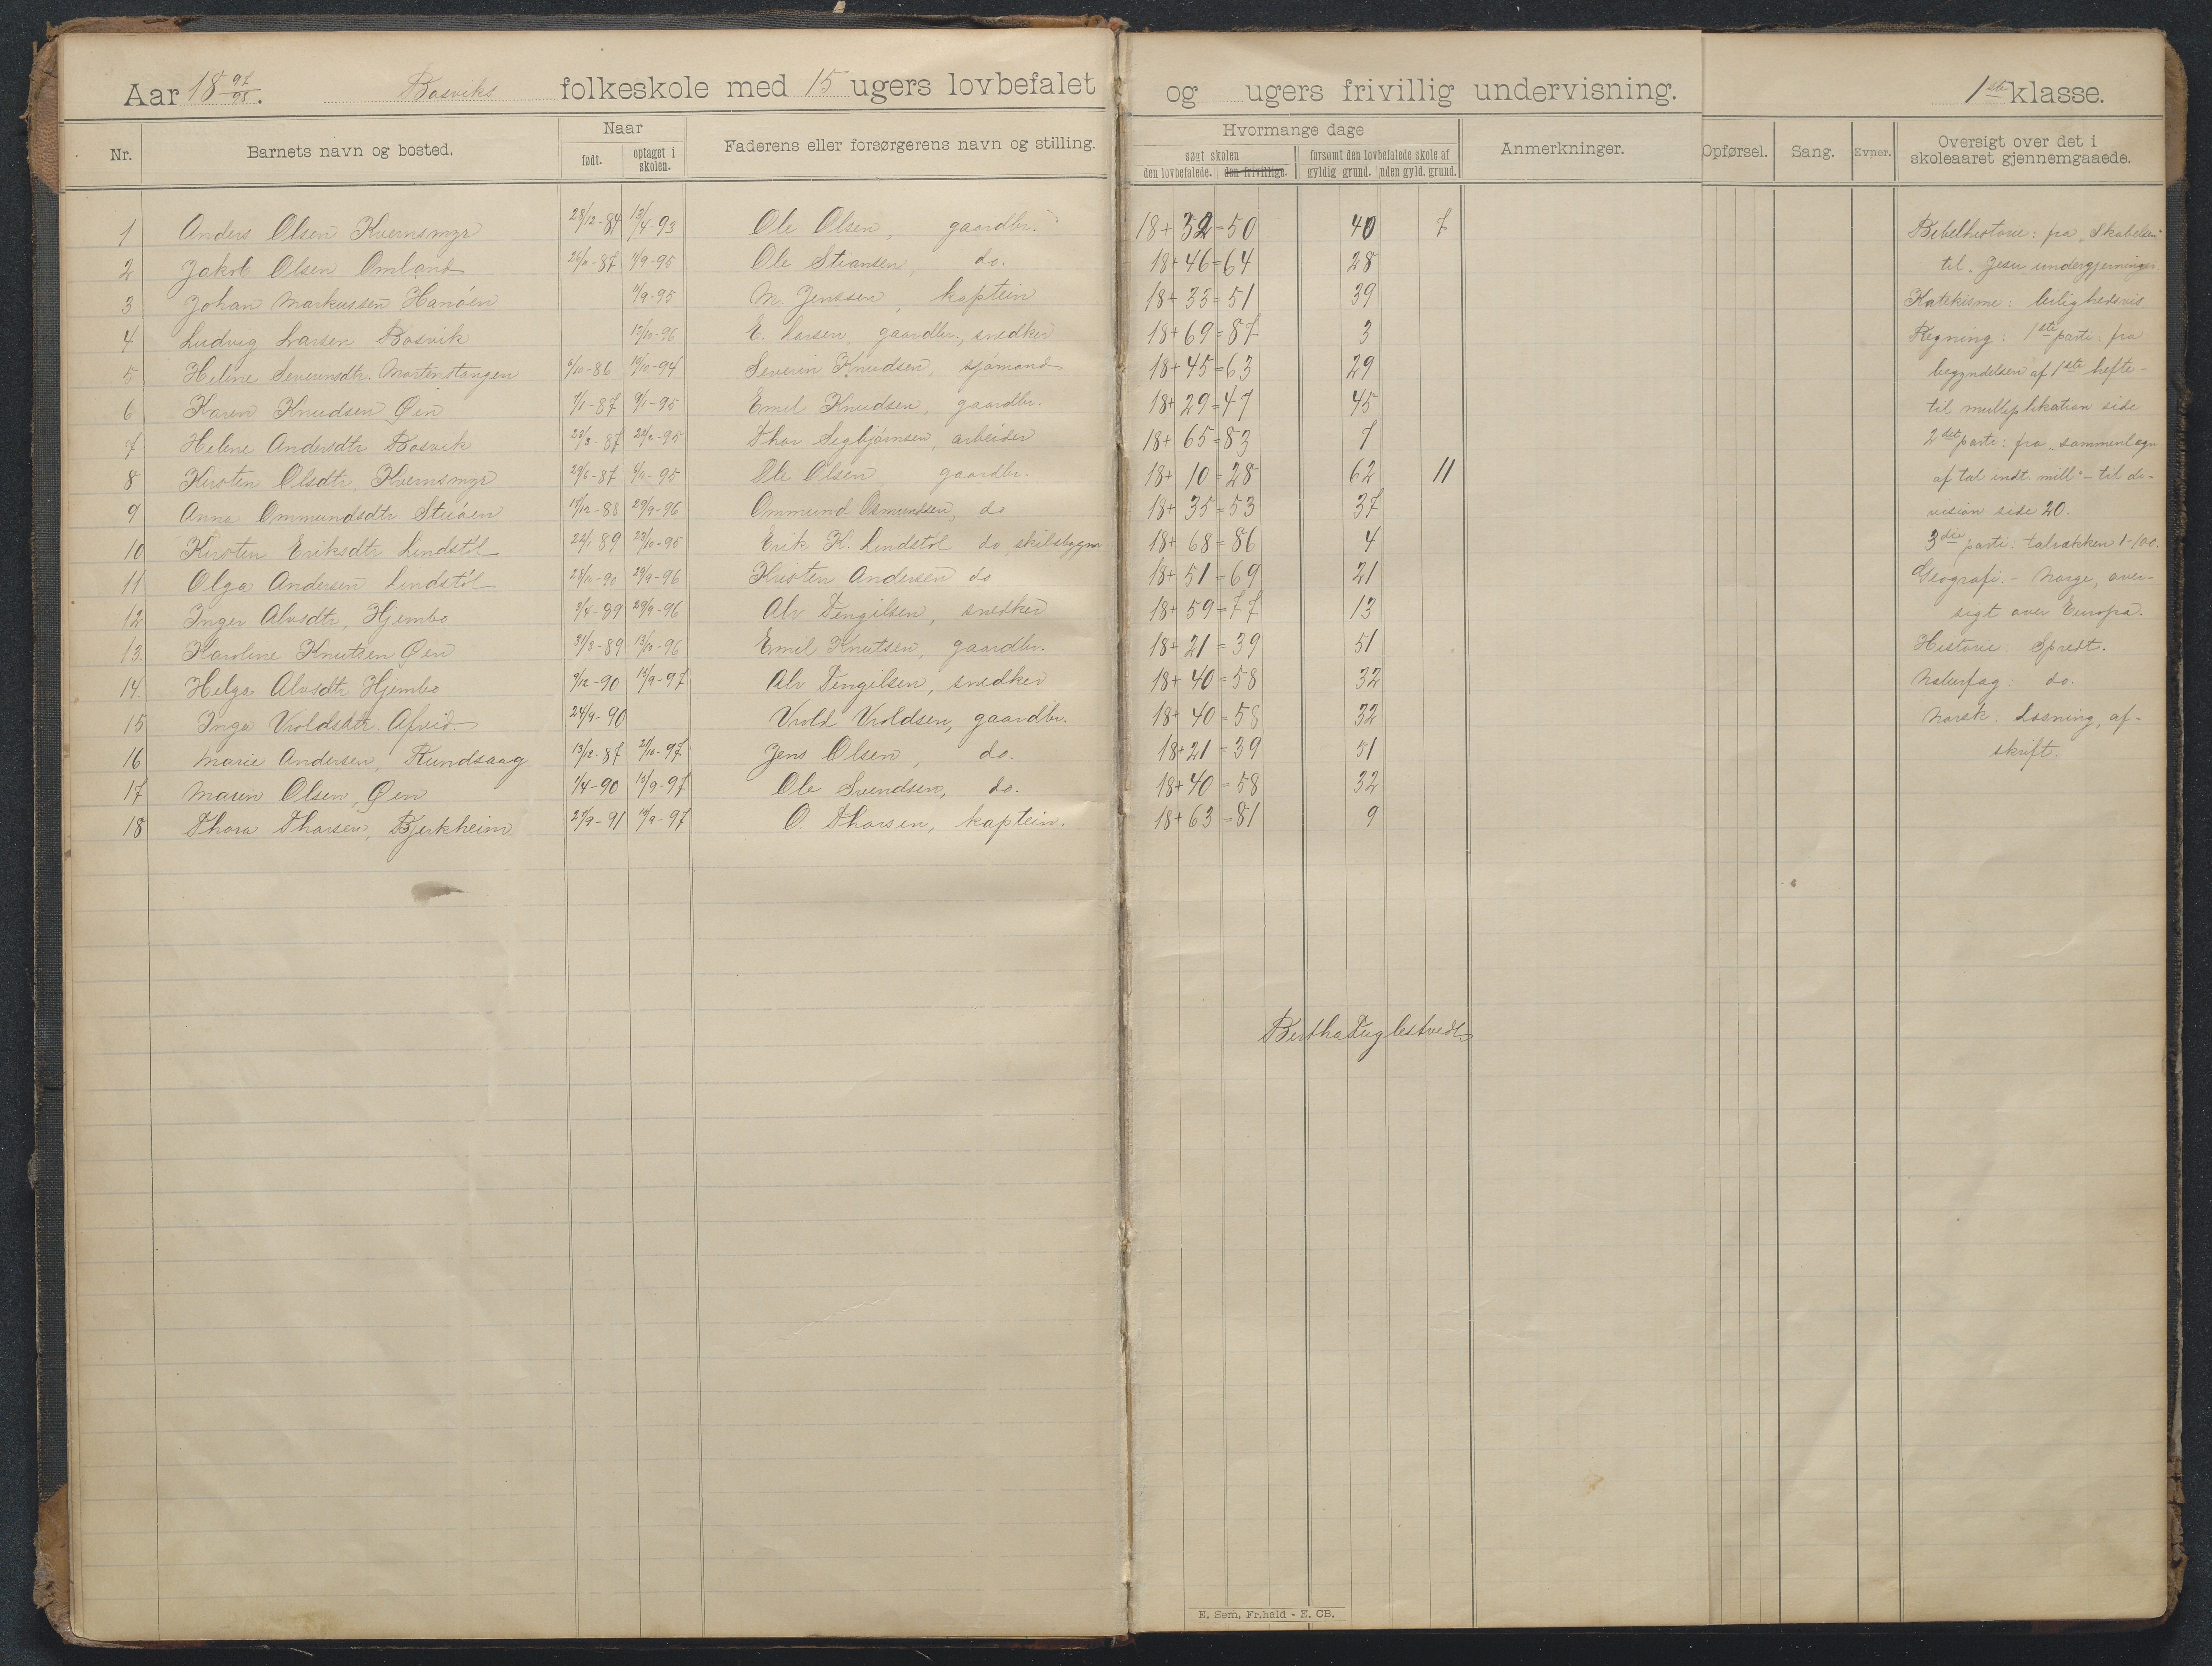 Aar 18 97/98. Bosviks folkeskole med 15 ugers lovbefalet og ugers frivillig undervisning. 1ste klasse.
Nr. Barnets navn og bosted. Naar født. optaget i skolen. Faderens eller forsørgerens navn og stilling. Hvormange dage søgt skolen den lovbefalede. den frivillige. forsømt den lovbefalede skole af gyldig grund. uden gyld. grund. Anmerkninger. Opførsel. Sang. Evner. Oversigt over det i skoleaaret gjennemgaaede.
1 Anders Olsen Kvernsmyr 28/12-84 13/4-93 Ole Olsen, gaardbr. 18+32=50 40 7 Bibelhistorie: fra "Skabelsen"
2 Jakob Olsen Omland 26/10-87 -95 Ole Stiansen, do. 18+46=64 28 til "Jesu undergjerninger.
3 Johan Markussen Hanøen -95 M. Jenssen, kaptein 18+33=51 39 Katekisme: leilighedsvis.
4 Ludvig Larsen Bosvik 13/10-96 E. Larsen, gaardbr., snedker 18+69=87 3 Regning: 1ste parti: fra
5 Helene Severinsdtr. Martenstangen 6/10-86 10/10-94 Severin Knudsen, sjømand 18+45=63 29 begyndelsen af 1ste hefte-
6 Karen Knudsen Øen 7/1-87 9/1-95 Emil Knudsen, gaardbr. 18+29=47 45 til multiplikation side
7 Helene Andersdtr Bosvik 28/3-87 22/2-95 Thor Segbjørnsen, arbeider 18+65=83 7 2det parti: fra "sammenlægn.
8 Kirsten Olsdtr, Kvernsmyr 29/6-87 -95 Ole Olsen gaardbr. 18+10=28 62 11 af tal indt. mill" - til di-
9 Anna Ommundsdtr. Stuøen 17/12-88 29/9-96 Ommund Osmundsen, do 18+35=53 37 vision side 20.
10 Kirsten Eriksdtr Lindstøl 22/1-89 23/10-95 Erik K. Lindstøl do, skibsbygm. 18+68=86 4 3die parti: talrækken 1-100.
11 Olga Andersen Lindstøl 28/10-90 29/9-96 Kristen Andersen do 18+51=69 21 Geografi.- Norge, over-
12 Inger Alvsdtr, Hjembo 3/4-89 29/9-96 Alv Tengilsen, snedker 18+59=77 13 sigt over Europa.
13. Karoline Knutsen Øen 31/3-89 13/10-96 Emil Knutsen, gaardbr. 18+21=39 51 Historie: Spredt.
14 Helga Alvsdtr Hjembo 9/12-90 13/9-97 Alv Tengilsen, snedker 18+40=58 32 Naturfag: do.
15 Inga Vroldsdtr. Afveid. 24/9-90 Vrold Vroldsen, gaardbr. 18+40=58 32 Norsk: Læsning, af-
16 Marie Andersen, Rundsaag. 13/12-87 21/10-97 Jens Olsen, do. 18+21=39 51 skrift.
17 Maren Olsen, Øen 1/4-90 13/9-97 Ole Svendsen, do. 18+40=58 32
18 Thora Thorsen, Bjerkheim 27/9-91 13/9-97 O. Thorsen, kaptein. 18+63=81 9
Bertha Fuglestvedt
E. Sem, Fr.hald - E. CB.